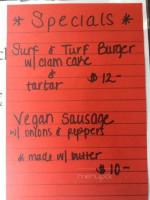 * Specials *
Surf & Turf Burger
w/ clam cake
&
tartar
$12-
Vegan Sausage
w/ onions & peppers
& made w/ butter
$10-